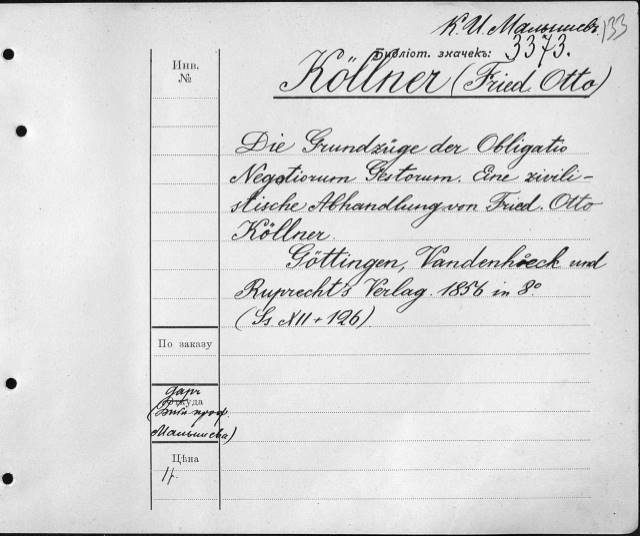 К. И. Малышевъ. 133
Библіот. значекъ: 3373.
Инв.
№
Köllner (Fried. Otto)
Die Grundzüge der Obligatio
Negotiorum Gestorum. Eine zivili-
stische Abhandlung von Fried. Otto
Köllner.
Göttingen, Vandenhoeck und
Ruprecht's Verlag. 1856 in 8°
(Ss VII + 126)
По заказу
даръ
Откуда
(Библ. проф.
Малышева)
Цѣна